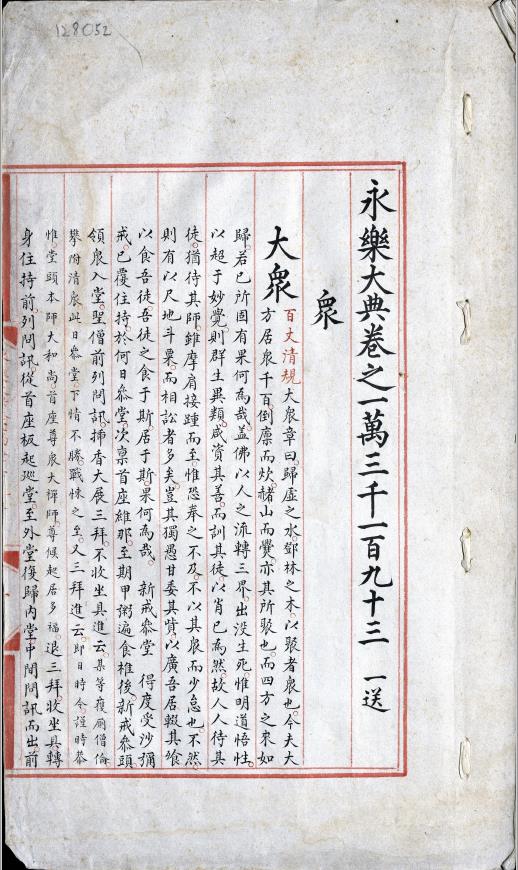 128052
永樂大典卷之一萬三千一百九十三 一送
衆
大衆 百丈清規大衆章曰歸虛之水鄧林之木以聚者衆也今夫大
方居衆千百倒廩而炊赭山而爨亦其所聚也而四方之來如
歸若已所固有果何為哉蓋佛以人之流轉三界出没生死惟明道悟性
以超于妙覺則群生異類咸資其善而訓其徒以肖已為然故人人待其
徒猶待其師雖摩肩接踵而至惟恐奉之不及不以其衆而少怠也不然
則有以尺地斗粟而相訟者多矣豈其獨愚甘委其貲以廣吾居輟其飱
以食吾徒吾徒之食于斯居于斯果何為哉 新戒叅堂 得度受沙彌
戒已覆住持於何日叅堂次稟首座維那至期甲粥遍食椎後新戒叅頭
領衆入堂聖僧前列問訊插香大展三拜不收坐具進云某等獲廁僧倫
攀附清衆此日叅堂下情不勝戰悚之至又三拜進云即日時令謹時恭
惟堂頭本師大和尚首座尊衆大禪師尊候起居多福退三拜收坐具轉
身住持前列問訊從首座板起巡堂至外堂復歸內堂中間問訊而出前